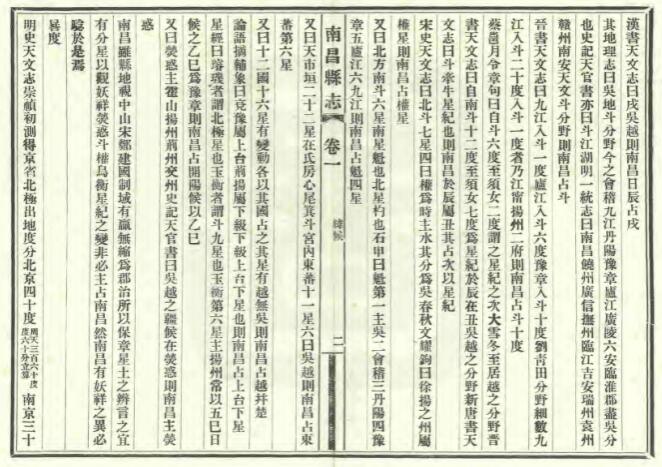 漢書天文志曰戌吳越則南昌日辰占戌
其地理志曰吳地斗分野今之會稽九江丹陽豫章廬江廣陵六安臨淮郡盡吳分
也史記天官書亦曰斗江湖明一統志曰南昌饒州廣信撫州臨江吉安瑞州袁州
贛州南安天文斗分野則南昌占斗
晉書天文志曰九江入斗一度廬江入斗六度豫章入斗十度劉青田分野細數九
江入斗二十度入斗一度者乃江甯揚州二府則南昌占斗十度
蔡邕月令章句曰自斗六度至須女二度謂之星紀之次大雪冬至居越之分野晉
書天文志曰自南斗十二度至須女七度爲星紀於辰在丑吳越之分野新唐書天
文志曰斗牽牛星紀也則南昌於辰屬丑其占次以星紀
宋史天文志曰北斗七星四曰權爲時主水其分爲吳春秋文耀鉤曰徐揚之州屬
權星則南昌占權星
又曰北方南斗六星南星魁也北星杓也石申曰魁第一主吳二會稽三丹陽四豫
章五廬江六九江則南昌占魁四星
南昌縣志
卷一
緯候
二
又曰天市垣二十二星在氐房心尾箕斗宮內東蕃十一星六曰吳越則南昌占東
蕃第六星
又曰十二國十六星有變動各以其國占之其星有越無吳則南昌占越幷楚
論語摘輔象曰兗豫屬上台荊揚屬下級下級上台下星也則南昌占上台下星
星經曰璿璣者謂北極星也玉衡者謂斗九星也玉衡第六星主揚州常以五巳日
候之乙巳爲豫章則南昌占開陽候以乙巳
又曰熒惑主霍山揚州荊州交州史記天官書曰吳越之疆候在熒惑則南昌主熒
惑
南昌雖縣地視中山宋鄭建國制域有贏無縮爲郡治所以保章星土之辨言之宜
有分星以觀妖祥熒惑斗權烏衡星紀之變非必主占南昌然南昌有妖祥之異必
驗於是焉
晷度
明史天文志崇禎初測得京省北極出地度分北京四十度周天三百六十度度六十分立算南京三十